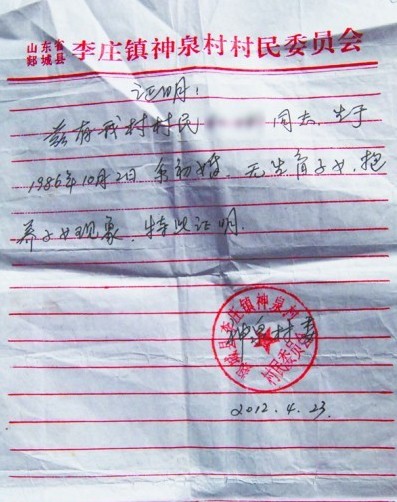 山东省
郯城县
李庄镇神泉村村民委员会
证明：
兹有我村村民 同志，生于
1986年10月2日 系初婚，无生育子女，抱
养子女现象，特此证明.
神泉村委
郯城县李庄镇神泉村
村民委员会
2012.4.23.